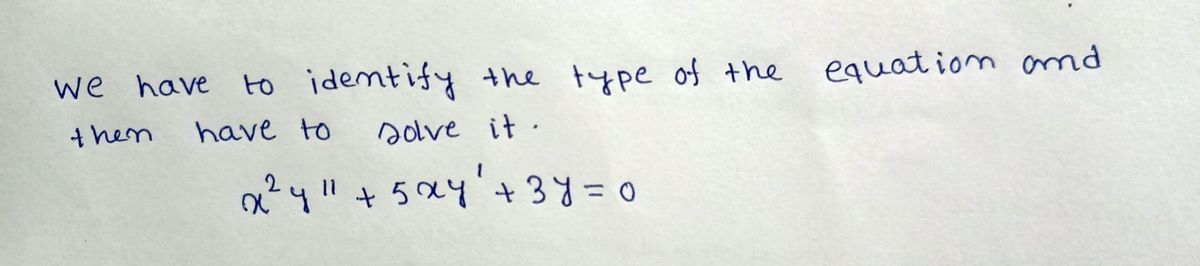 We have to identify the type of the equation and
then have to solve it.
x²y'' + 5xy' + 3y = 0